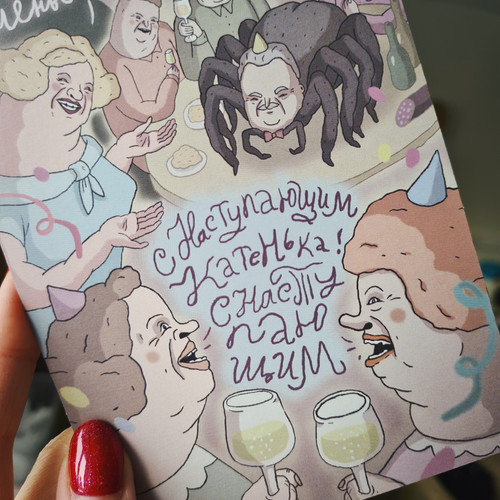 С НАСТУПАЮЩИМ
КАТЕНЬКА!
С НАСТУ
ПАЮ
ЩИМ